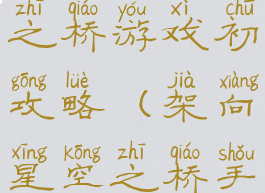 zhī qiáo yóu xì chū
之桥游戏初
gōng lüè ( jià xiàng
攻略(架向
xīng kōng zhī qiáo shǒu
星空之桥手